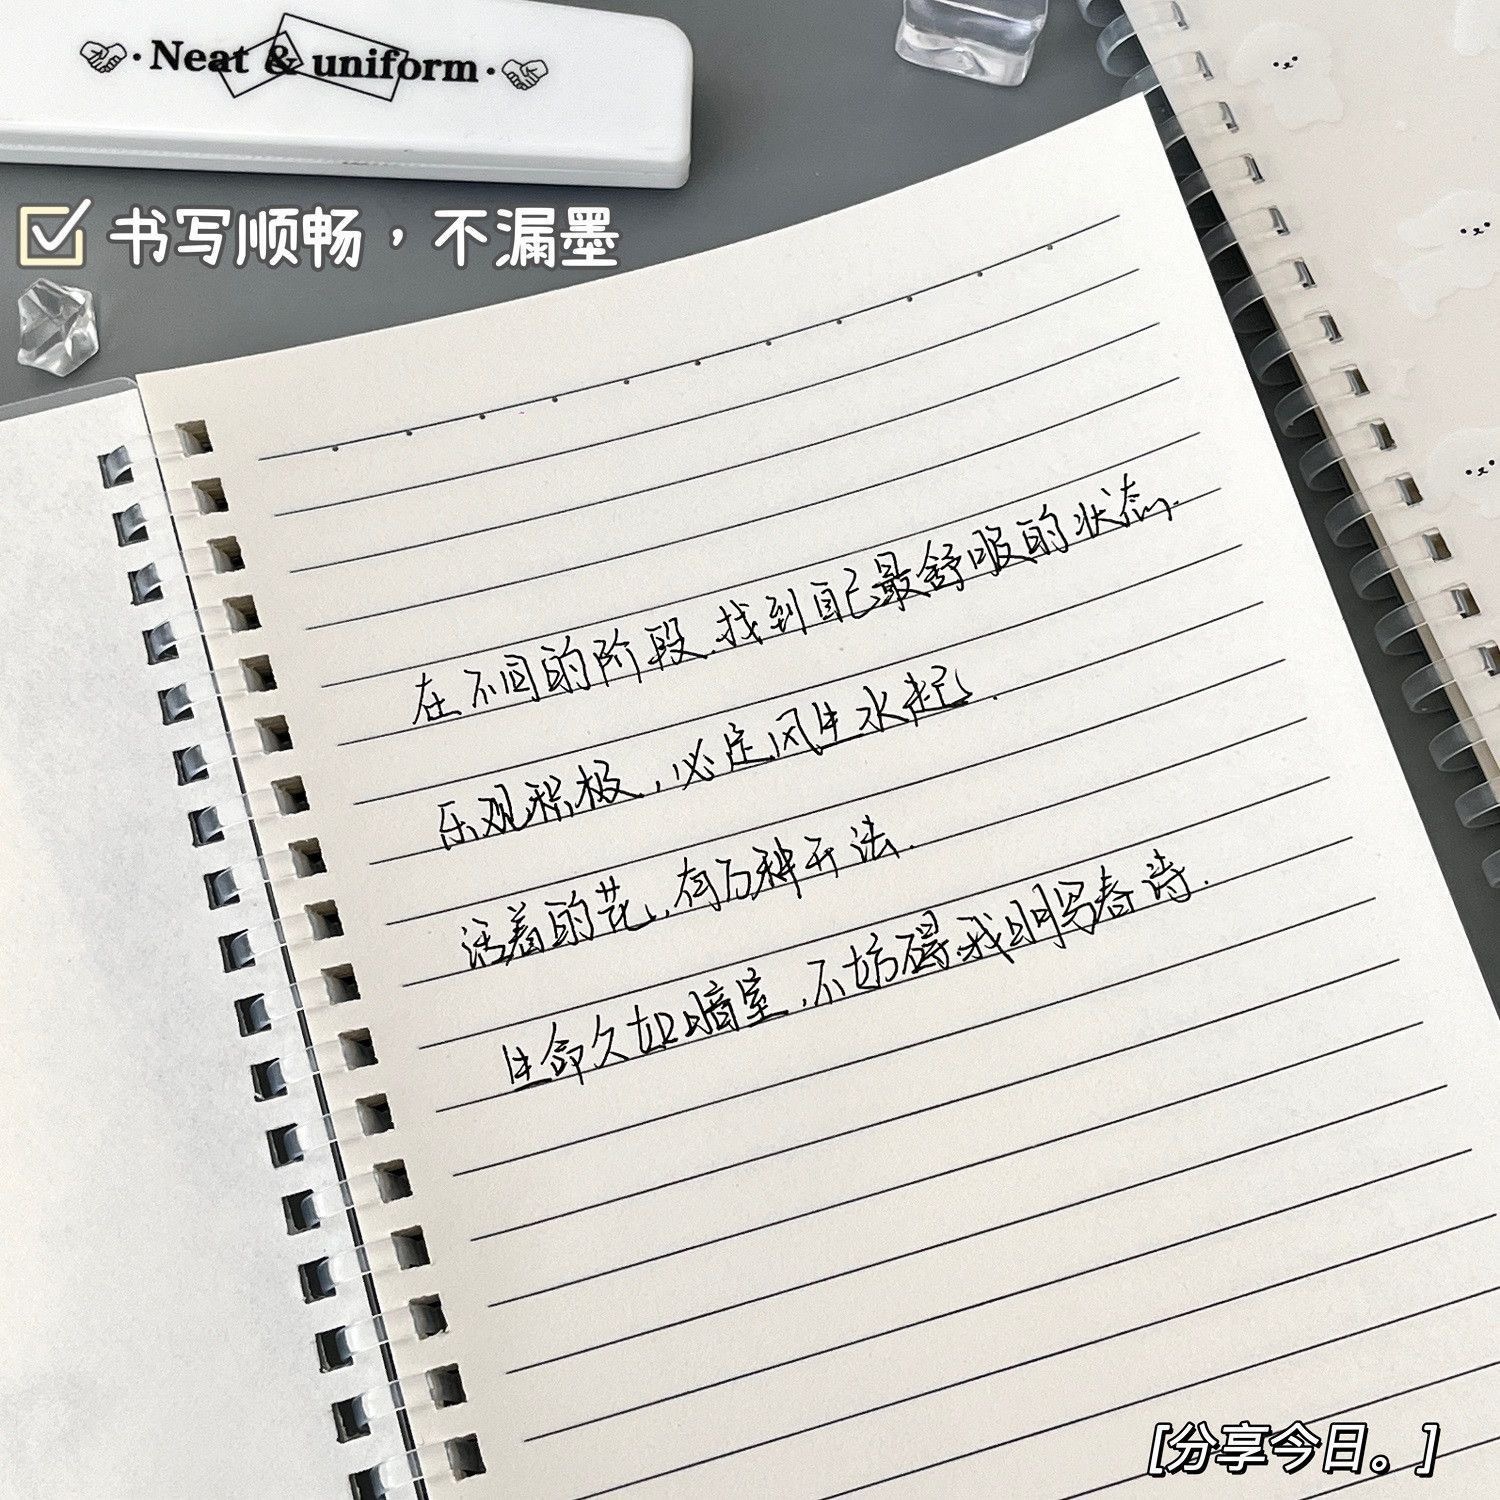 ·Neat & uniform·
书写顺畅，不漏墨
在不同的阶段.找到自己最舒服的状态.
乐观积极，必定风生水起.
活着的花，有万种开法.
生命久如暗室，不妨碍我明写春诗.
[分享今日。]